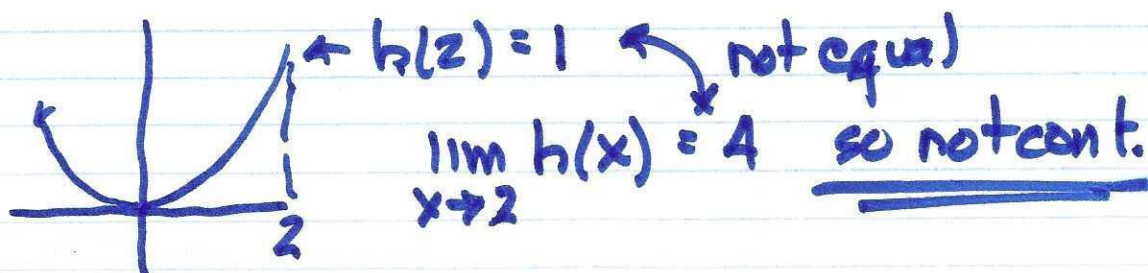 h(2) = 1 not equal
lim h(x) = 4 so not cont.
x→2
2